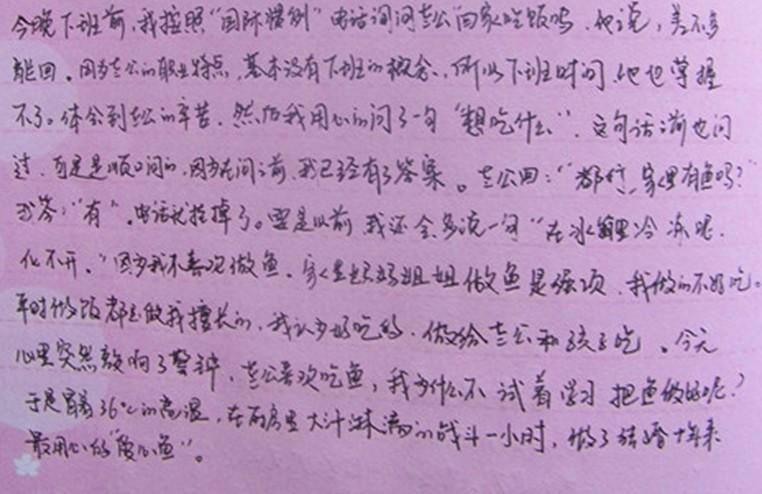 今晚下班前,我按照“国际惯例”电话询问老公回家吃饭吗,他说,差不多
能回。因为老公的职业特点,基本没有下班的概念,所以下班时间他也掌握
不了。体会到老公的辛苦,然后我用心的问了一句“想吃什么”,这句话之前也问
过,可是是顺口问的,因为在问之前,我已经有了答案。老公回:“都行,家里有鱼吗?”
我答:“有”。电话就挂掉了。要是以前,我还会多说一句“在冰箱里冷冻呢,
化不开。”因为我不喜欢做鱼,家里妈妈姐姐做鱼是强项,我做的不好吃。
平时做饭都是做我擅长的,我认为好吃的,做给老公和孩子吃。今天
心里突然敲响了警钟,老公喜欢吃鱼,我为什么不试着学习把鱼做好呢?
于是冒着36℃的高温,在厨房里大汗淋漓的战斗一小时,做了结婚十年来
最用心的“爱心鱼”。